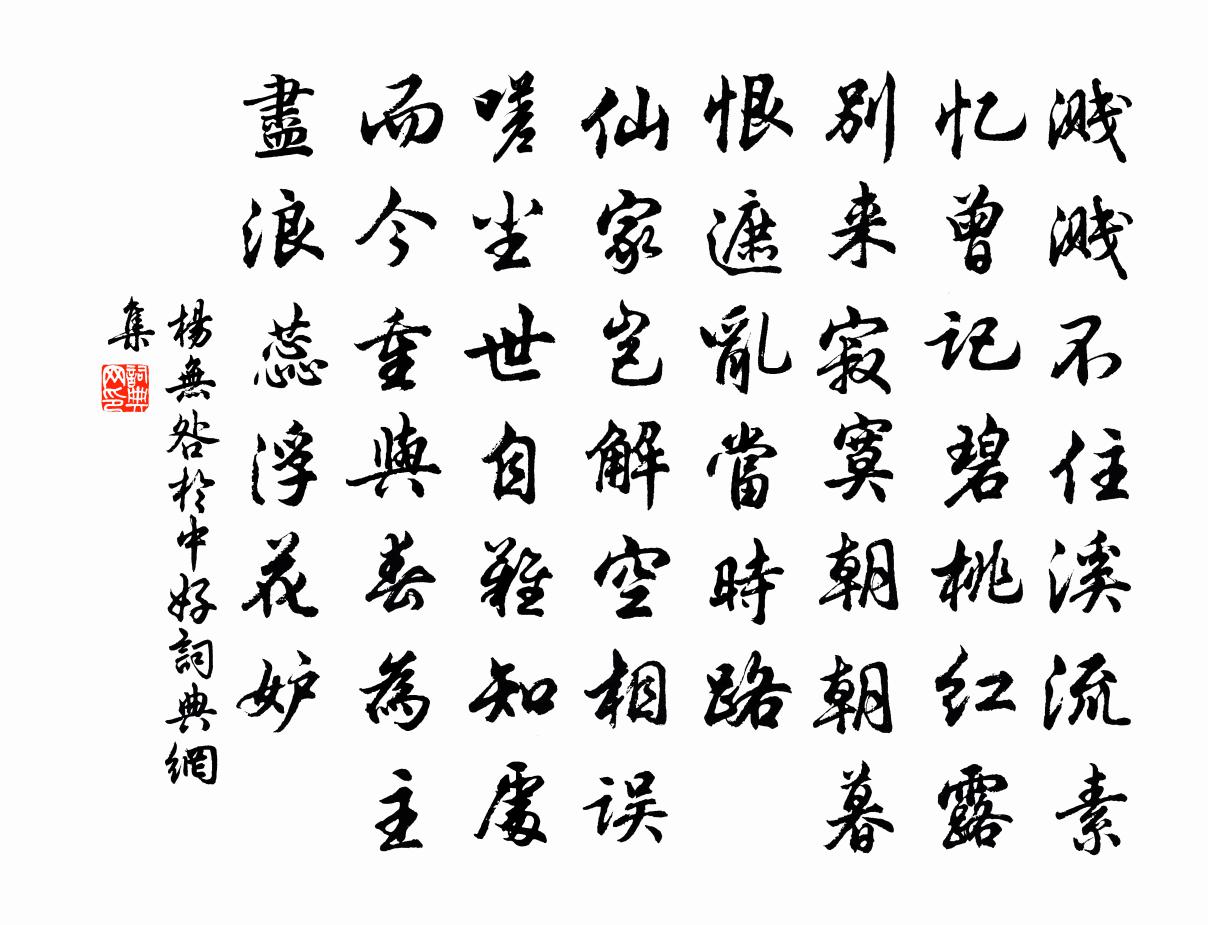 溅溅不住溪流素
忆曾记碧桃红露
别来寂寞朝朝暮
恨遮亂當時路
仙家岂解空相误
嗟尘世自難知處
而今重與春為主
盡浪蕊浮花妒
楊無咎於中好詞典網
集
詞典网印